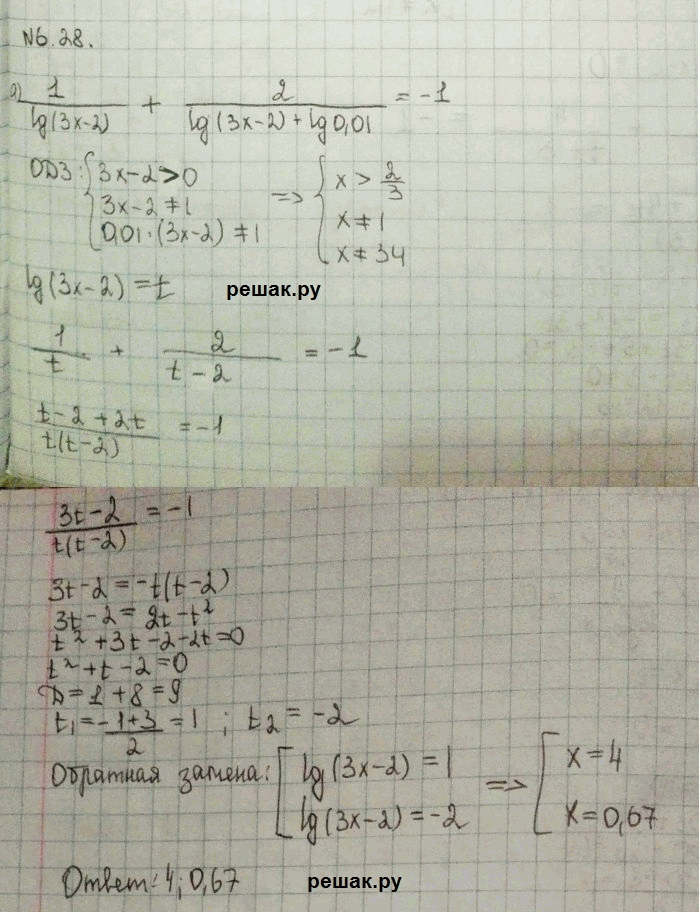 №6.28.
а) 1/lg(3x-2) + 2/(lg(3x-2)+lg0,01) = -1
ОДЗ: { 3x-2>0 => { x > 2/3
3x-2≠1 x≠1
0,01·(3x-2)≠1 x≠34
lg(3x-2)=t решак.ру
1/t + 2/(t-2) = -1
(t-2+2t)/(t(t-2)) = -1
(3t-2)/(t(t-2)) = -1
3t-2=-t(t-2)
3t-2=2t-t²
t²+3t-2-2t=0
t²+t-2=0
D=1+8=9
t₁=(-1+3)/2=1 ; t₂=-2
Обратная замена: [ lg(3x-2)=1 => [ x=4
lg(3x-2)=-2 x=0,67
Ответ: 4; 0,67 решак.ру